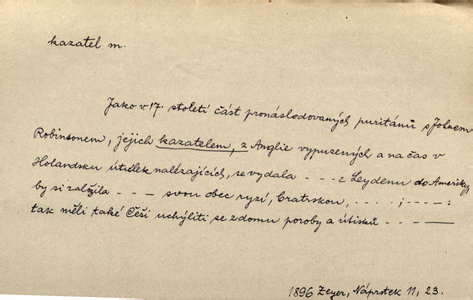 kazatel m.
Jako v 17. století část pronásledovaných puritánů s Johnem
Robinsonem, jejich kazatelem, z Anglie vypuzených a na čas v
Holandsku útulek nalézajících, se vydala - - - z Leydenu do Ameriky,
by si založila - - - svou obec ryzí, bratrskou, - - - ; - - - - :
tak měli také Češi uchýliti se z domu poroby a útisků - - - —
1896 Zeyer, Náprstek 11, 23.